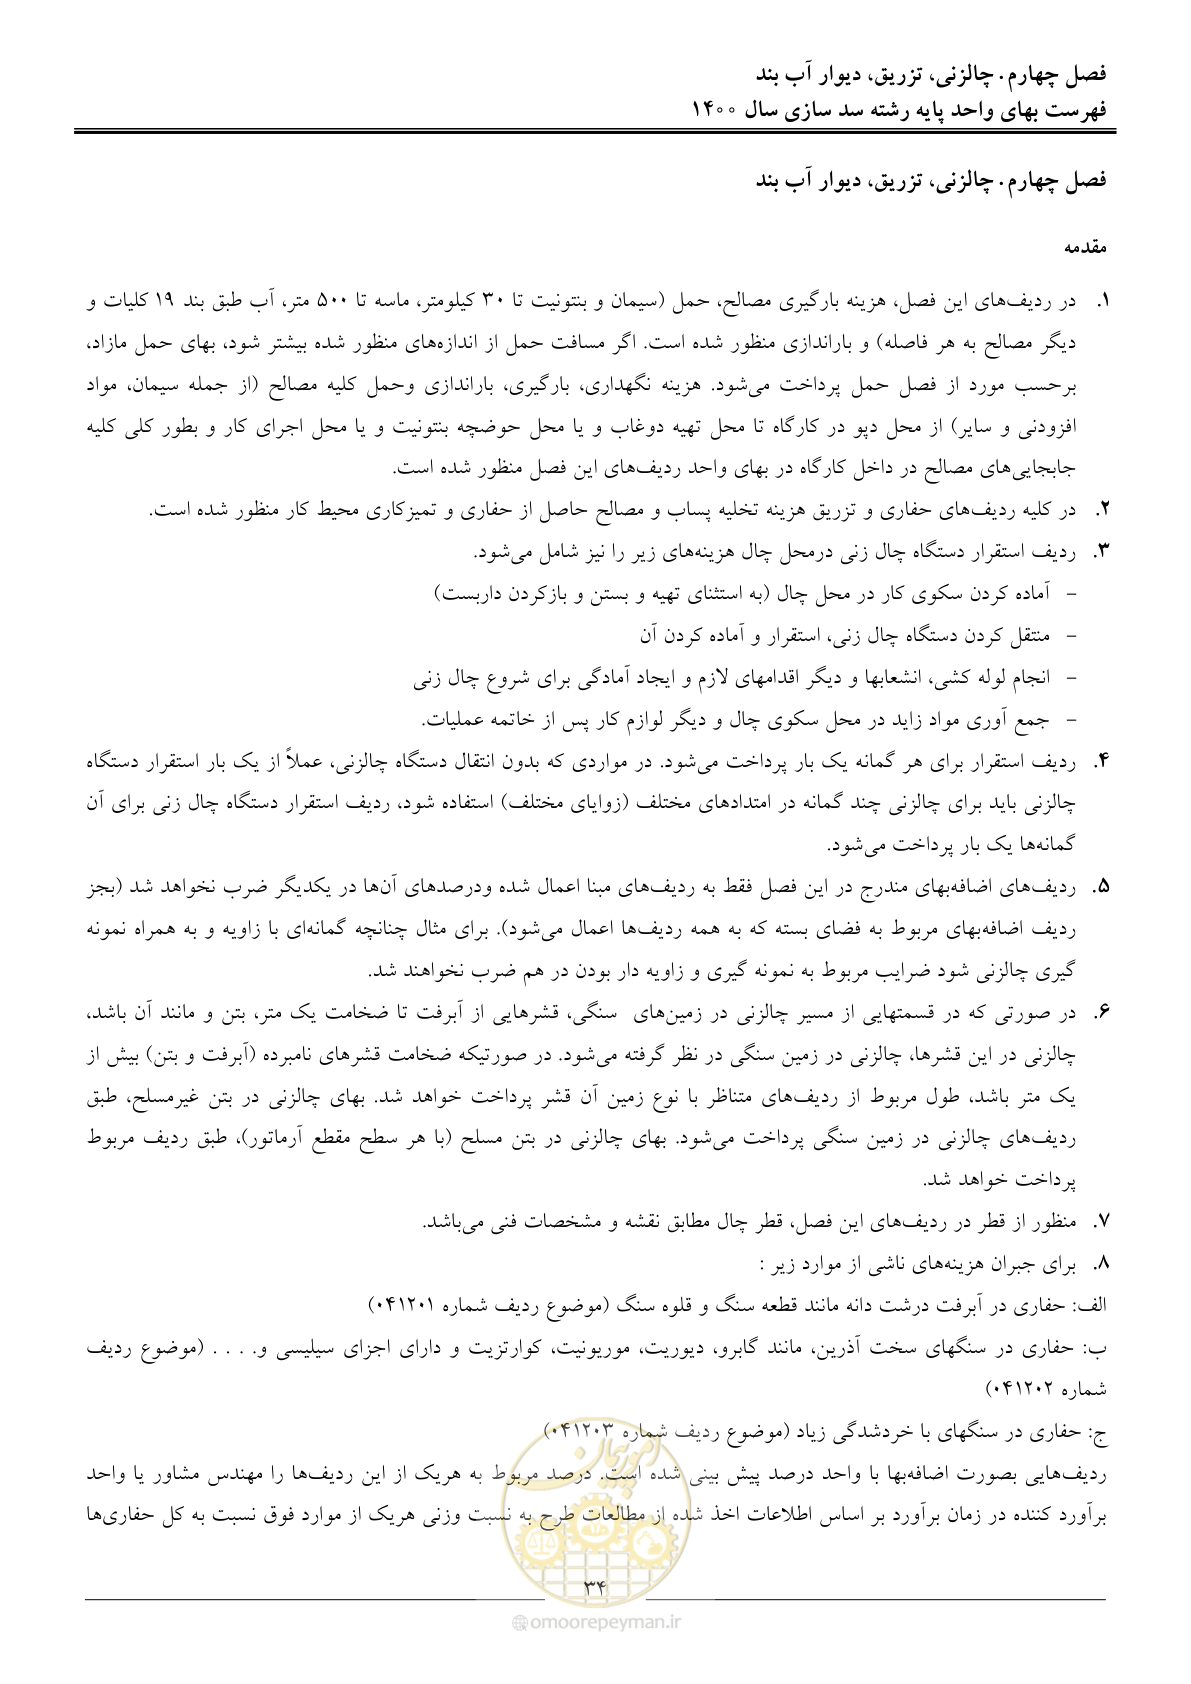 فصل چهارم. چالزنی، تزریق، دیوار آب بند
فهرست بهای واحد پایه رشته سد سازی سال ۱۴۰۰
فصل چهارم. چالزنی، تزریق، دیوار آب بند
مقدمه
۱. در ردیف‌های این فصل، هزینه بارگیری مصالح، حمل (سیمان و بنتونیت تا ۳۰ کیلومتر، ماسه تا ۵۰۰ متر، آب طبق بند ۱۹ کلیات و
دیگر مصالح به هر فاصله) و باراندازی منظور شده است. اگر مسافت حمل از اندازه‌های منظور شده بیشتر شود، بهای حمل مازاد،
برحسب مورد از فصل حمل پرداخت می‌شود. هزینه نگهداری، بارگیری، باراندازی وحمل کلیه مصالح (از جمله سیمان، مواد
افزودنی و سایر) از محل دپو در کارگاه تا محل تهیه دوغاب و یا محل حوضچه بنتونیت و یا محل اجرای کار و بطور کلی کلیه
جابجایی‌های مصالح در داخل کارگاه در بهای واحد ردیف‌های این فصل منظور شده است.
۲. در کلیه ردیف‌های حفاری و تزریق هزینه تخلیه پساب و مصالح حاصل از حفاری و تمیزکاری محیط کار منظور شده است.
۳. ردیف استقرار دستگاه چال زنی درمحل چال هزینه‌های زیر را نیز شامل می‌شود.
– آماده کردن سکوی کار در محل چال (به استثنای تهیه و بستن و بازکردن داربست)
– منتقل کردن دستگاه چال زنی، استقرار و آماده کردن آن
– انجام لوله کشی، انشعابها و دیگر اقدامهای لازم و ایجاد آمادگی برای شروع چال زنی
– جمع آوری مواد زاید در محل سکوی چال و دیگر لوازم کار پس از خاتمه عملیات.
۴. ردیف استقرار برای هر گمانه یک بار پرداخت می‌شود. در مواردی که بدون انتقال دستگاه چالزنی، عملاً از یک بار استقرار دستگاه
چالزنی باید برای چالزنی چند گمانه در امتدادهای مختلف (زوایای مختلف) استفاده شود، ردیف استقرار دستگاه چال زنی برای آن
گمانه‌ها یک بار پرداخت می‌شود.
۵. ردیف‌های اضافه‌بهای مندرج در این فصل فقط به ردیف‌های مبنا اعمال شده ودرصدهای آن‌ها در یکدیگر ضرب نخواهد شد (بجز
ردیف اضافه‌بهای مربوط به فضای بسته که به همه ردیف‌ها اعمال می‌شود). برای مثال چنانچه گمانه‌ای با زاویه و به همراه نمونه
گیری چالزنی شود ضرایب مربوط به نمونه گیری و زاویه دار بودن در هم ضرب نخواهند شد.
۶. در صورتی که در قسمتهایی از مسیر چالزنی در زمین‌های سنگی، قشرهایی از آبرفت تا ضخامت یک متر، بتن و مانند آن باشد،
چالزنی در این قشرها، چالزنی در زمین سنگی در نظر گرفته می‌شود. در صورتیکه ضخامت قشرهای نامبرده (آبرفت و بتن) بیش از
یک متر باشد، طول مربوط از ردیف‌های متناظر با نوع زمین آن قشر پرداخت خواهد شد. بهای چالزنی در بتن غیرمسلح، طبق
ردیف‌های چالزنی در زمین سنگی پرداخت می‌شود. بهای چالزنی در بتن مسلح (با هر سطح مقطع آرماتور)، طبق ردیف مربوط
پرداخت خواهد شد.
۷. منظور از قطر در ردیف‌های این فصل، قطر چال مطابق نقشه و مشخصات فنی می‌باشد.
۸. برای جبران هزینه‌های ناشی از موارد زیر :
الف: حفاری در آبرفت درشت دانه مانند قطعه سنگ و قلوه سنگ (موضوع ردیف شماره ۰۴۱۲۰۱)
ب: حفاری در سنگهای سخت آذرین، مانند گابرو، دیوریت، موریونیت، کوارتزیت و دارای اجزای سیلیسی و. . . . (موضوع ردیف
شماره ۰۴۱۲۰۲)
ج: حفاری در سنگهای با خردشدگی زیاد (موضوع ردیف شماره ۰۴۱۲۰۳)
ردیف‌هایی بصورت اضافه‌بها با واحد درصد پیش بینی شده است. درصد مربوط به هریک از این ردیف‌ها را مهندس مشاور یا واحد
برآورد کننده در زمان برآورد بر اساس اطلاعات اخذ شده از مطالعات طرح به نسبت وزنی هریک از موارد فوق نسبت به کل حفاری‌ها
امور پیمان
۳۴
omoorepeyman.ir